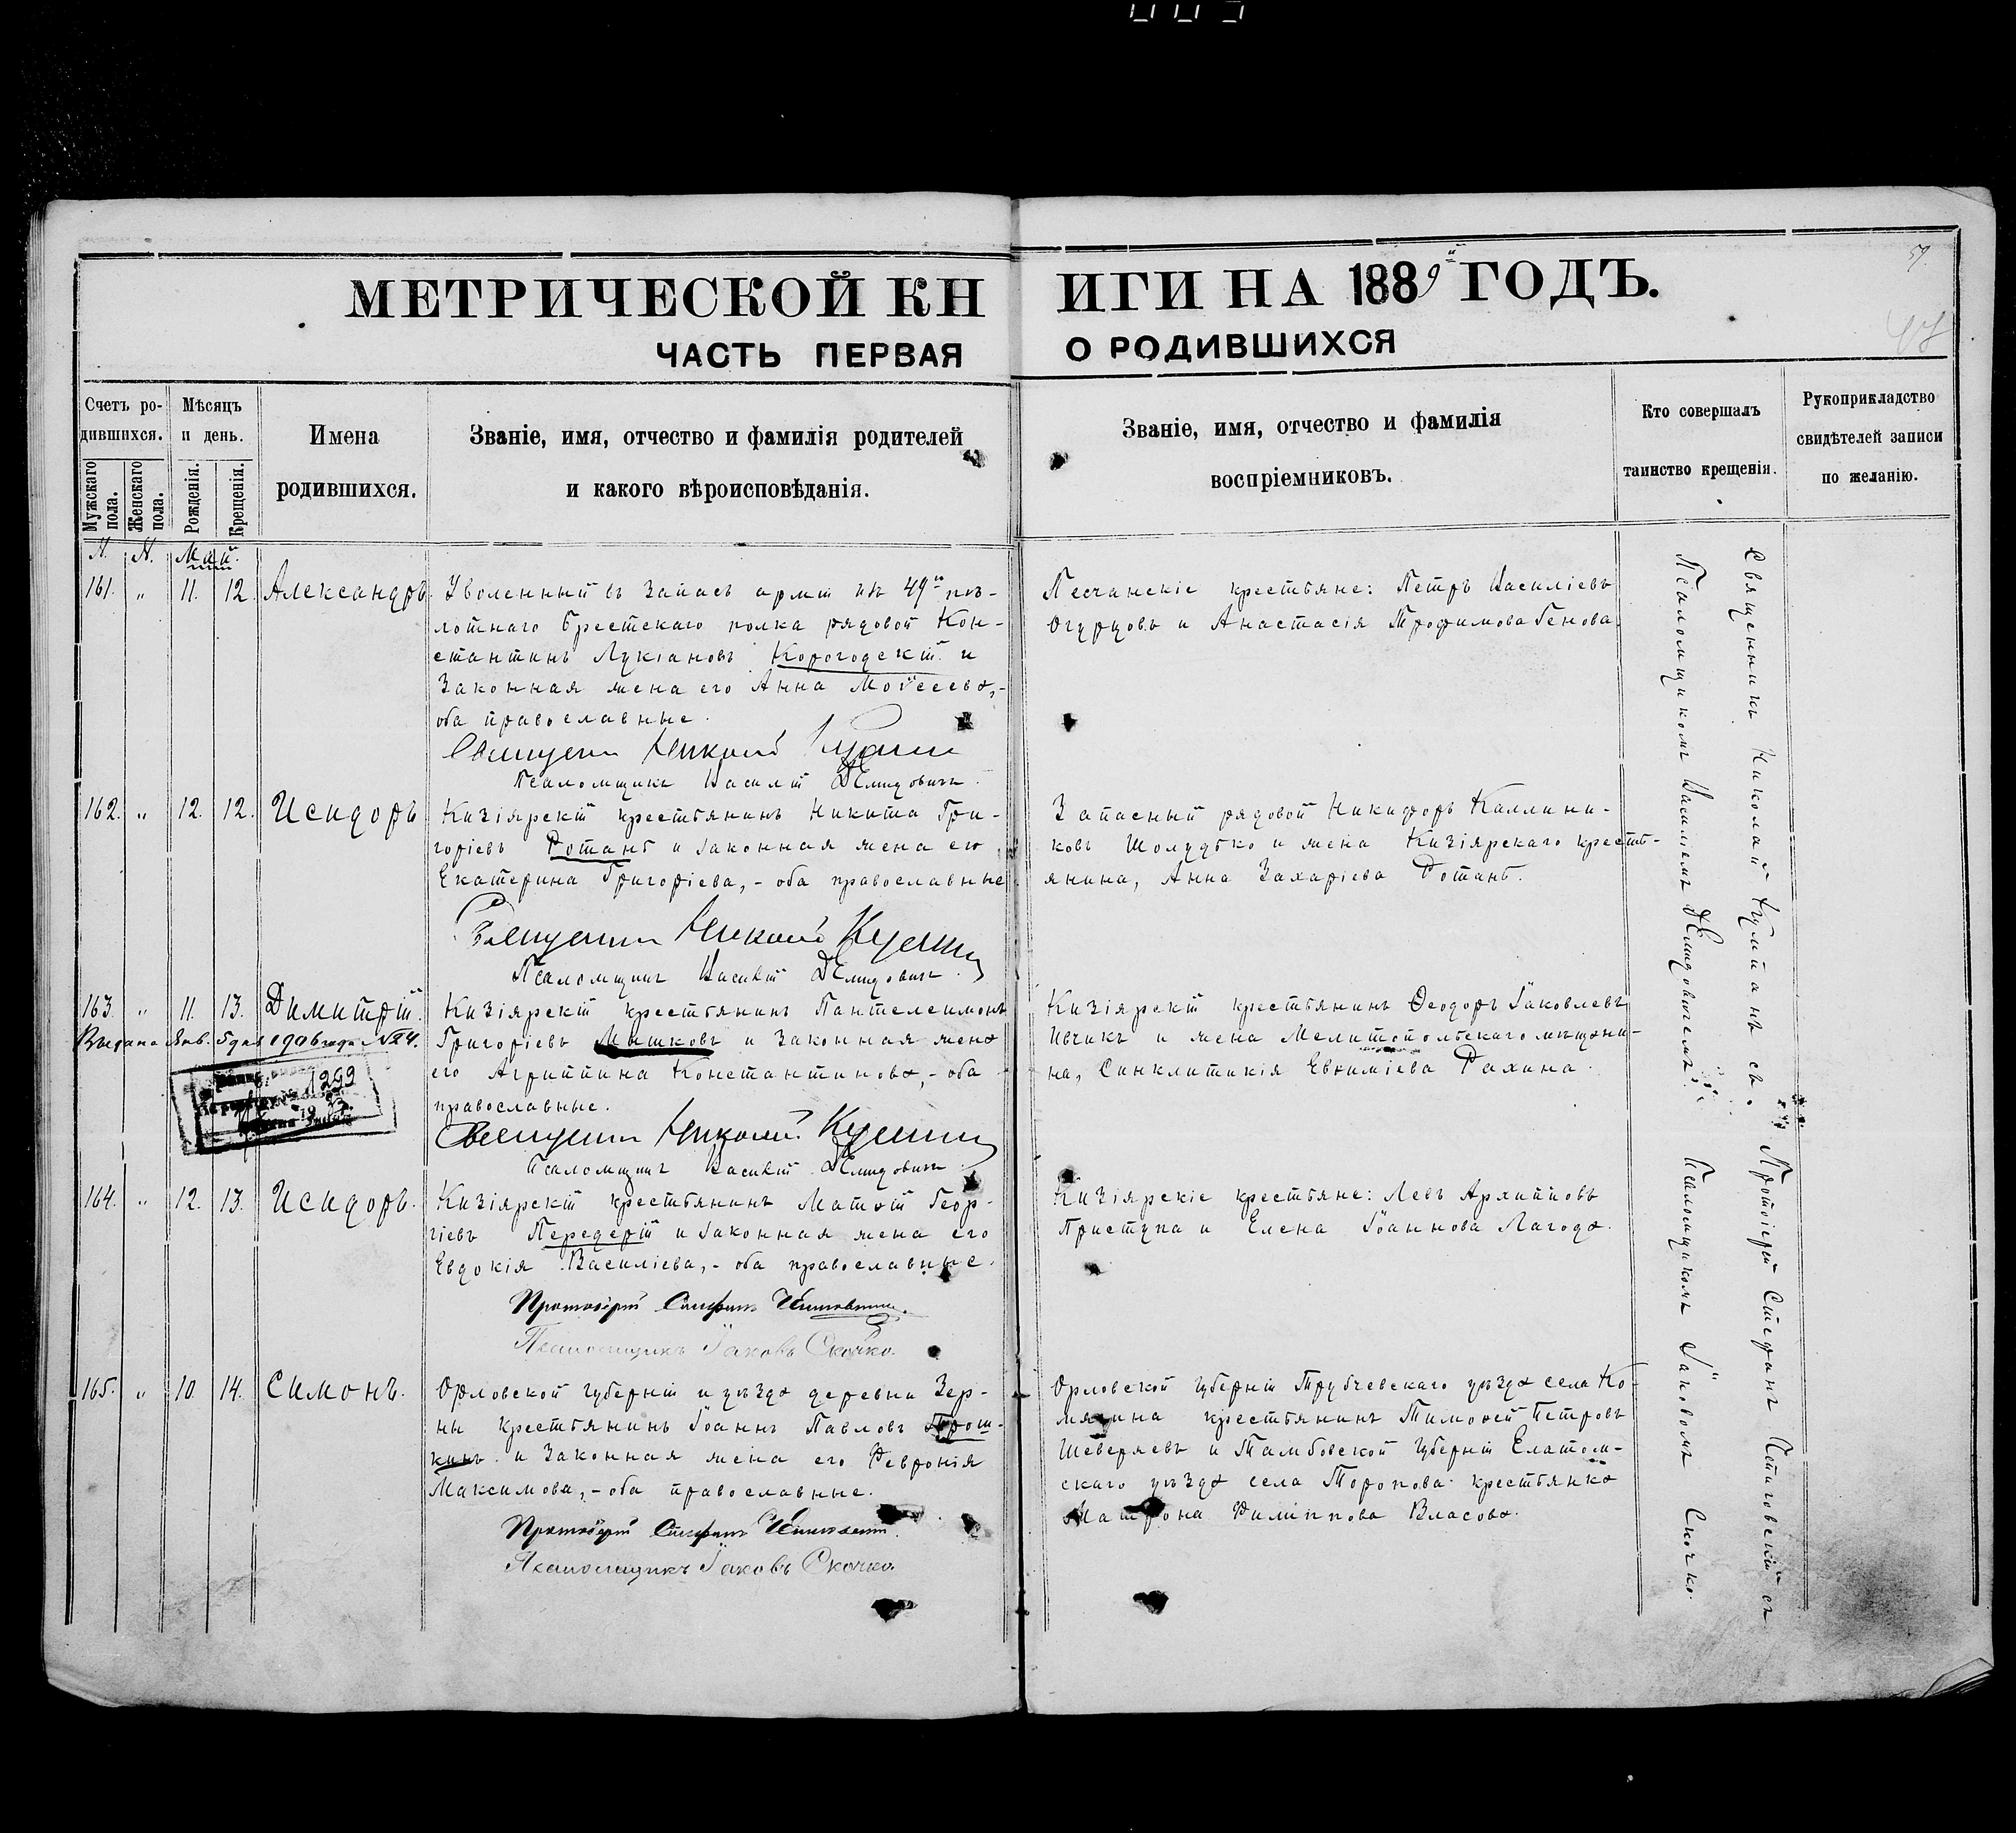 МЕТРИЧЕСКОЙ КНИГИ НА 1889й ГОДЪ.
59.
ЧАСТЬ ПЕРВАЯ О РОДИВШИХСЯ
Счетъ родившихся.
Мужскаго пола.
Женскаго пола.
Мѣсяцъ и день.
Рожденія.
Крещенія.
Имена
родившихся.
Званіе, имя, отчество и фамилія родителей
и какого вѣроисповѣданія.
Званіе, имя, отчество и фамилія
воспріемниковъ.
Кто совершалъ
таинство крещенія.
Рукоприкладство
свидѣтелей записи
по желанію.
N. N. Май.
161. " 11. 12. Александръ.
Уволенный въ запасъ арміи изъ 49го
лотнаго Брестскаго полка рядовой Кон-
стантинъ Лукіановъ Корогодскій и
законная жена его Анна Моѵсеева,-
оба православные.
Священникъ Николай
Псаломщикъ Василій Демидовичъ.
Песчанскіе крестьяне: Петръ Василіевъ
Огурцовъ и Анастасія Трофимова Генова.
162. " 12. 12. Исидоръ
Кизіярскій крестьянинъ Никита Гри-
горіевъ Ротань и законная жена его
Екатерина Григоріева,- оба православные
Священникъ Николай
Псаломщикъ Василій Демидовичъ.
Запасный рядовой Никифоръ Каллини-
ковъ Шолудько и жена Кизіярскаго кресть-
янина, Анна Захаріева Ротань.
163. " 11. 13. Димитрій.
Выдана Янв. 5 дня 1906 года №24.
1299
Кизіярскій крестьянинъ Пантелеимонъ
Григоріевъ Мышковъ и законная жена
его Агриппина Константинова,- оба
православные.
Священникъ Николай
Псаломщикъ Василій Демидовичъ.
Кизіярскій крестьянинъ Ѳеодоръ Іаковлевъ
Ивчикъ и жена Мелитопольскаго мѣщани-
на, Синклитикія Евѳиміева Рахина.
164. " 12. 13. Исидоръ.
Кизіярскій крестьянинъ Матѳій Геор-
гіевъ Передерій и законная жена его
Евдокія Василіева,- оба православные.
Протоіерей Стефанъ
Псаломщикъ Іаковъ Скочко.
Кизіярскіе крестьяне: Левъ Архипповъ
Приступа и Елена Іоаннова Лагода.
165. " 10. 14. Симонъ.
Орловской губерніи и уѣзда деревни Зер-
ны крестьянинъ Іоаннъ Павловъ Трош-
кинъ и законная жена его Февронія
Максимова,- оба православные.
Протоіерей Стефанъ
Псаломщикъ Іаковъ Скочко.
Орловской губерніи Трубчевскаго уѣзда села Ко-
мягина крестьянинъ Тимоѳей Петровъ
Шеверяевъ и Тамбовской губерніи Елатом-
скаго уѣзда села Торопова крестьянка
Матрона Филиппова Власова.
Священникъ Николай съ
Псаломщикомъ Василіемъ Демидовичемъ;
Протоіерей Стефанъ съ
Псаломщикомъ Іаковомъ Скочко.